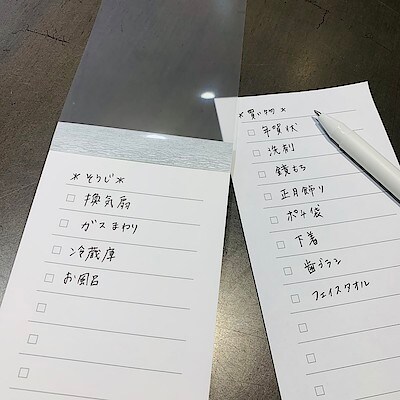 *そうじ*
換気扇
ガスまわり
冷蔵庫
お風呂
*買い物*
年賀状
洗剤
鏡もち
正月飾り
ポチ袋
下着
歯ブラシ
フェイスタオル